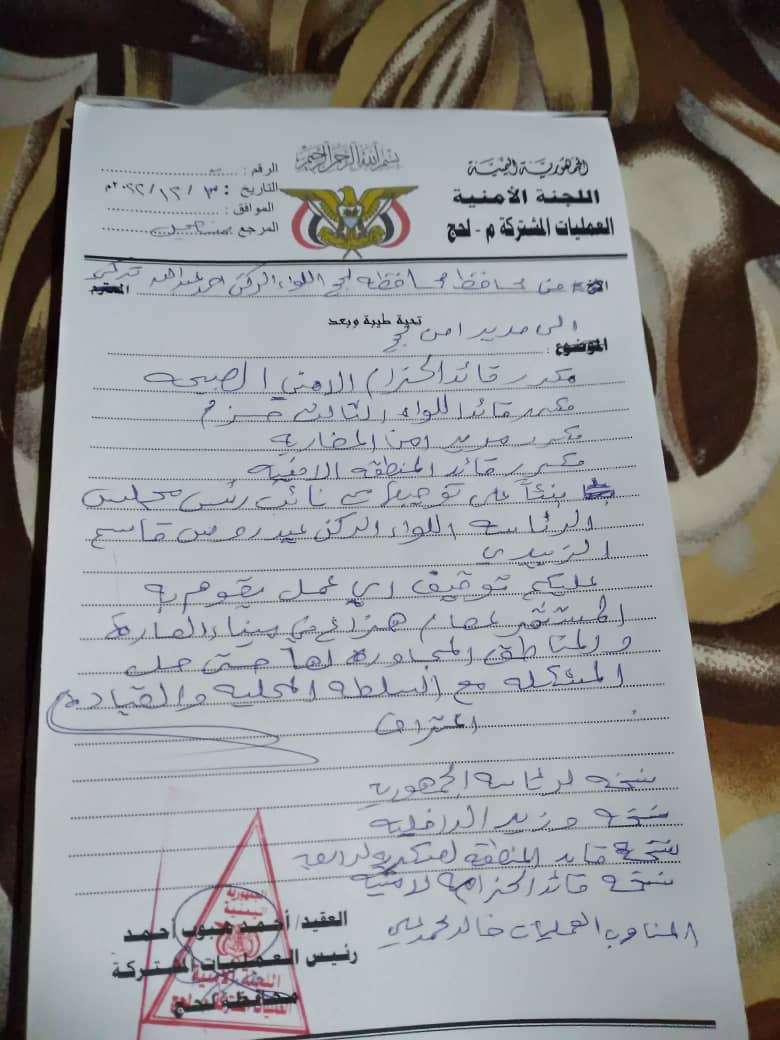 بسم الله الرحمن الرحيم
الجمهورية اليمنية
اللجنة الأمنية
العمليات المشتركة م - لحج
الرقم :
التاريخ : ٣ / ١٢ / ٢٠٢٢م
الموافق :
المرجع :
من محافظ محافظة لحج اللواء الركن احمد عبدالله تركي
المحترم
تحية طيبة وبعد
الى مدير امن لحج
الموضوع :
مكرر قائد الحزام الامني الصبيحه
مكرر قائد اللواء الثالث حزم
مكرر مدير امن المضاربه
مكرر قائد المنطقه الامنيه
بنئاً على توجيهات نائب رئس مجلس
الرئاسه اللواء الركن عيدروس قاسم
الزبيدي
عليكم توقيف اي عمل يقوم به
المستثمر عصام هزاع في ميناء العارة
والمناطق المجاوره لها حتى حل
المشكله مع السلطه المحليه والقياده
نسخه لرئاسه الجمهوريه
نسخه وزير الداخليه
نسخه قايد المنطقه العسكريه لرابعه
نسخه قائد الحزام لامنيه
المناوب العمليات خالد محمد علي
العقيد/ أحمد مهيوب أحمد
رئيس العمليات المشتركة
محافظة لحج
الجمهورية
اليمنية
اللجنة الأمنية